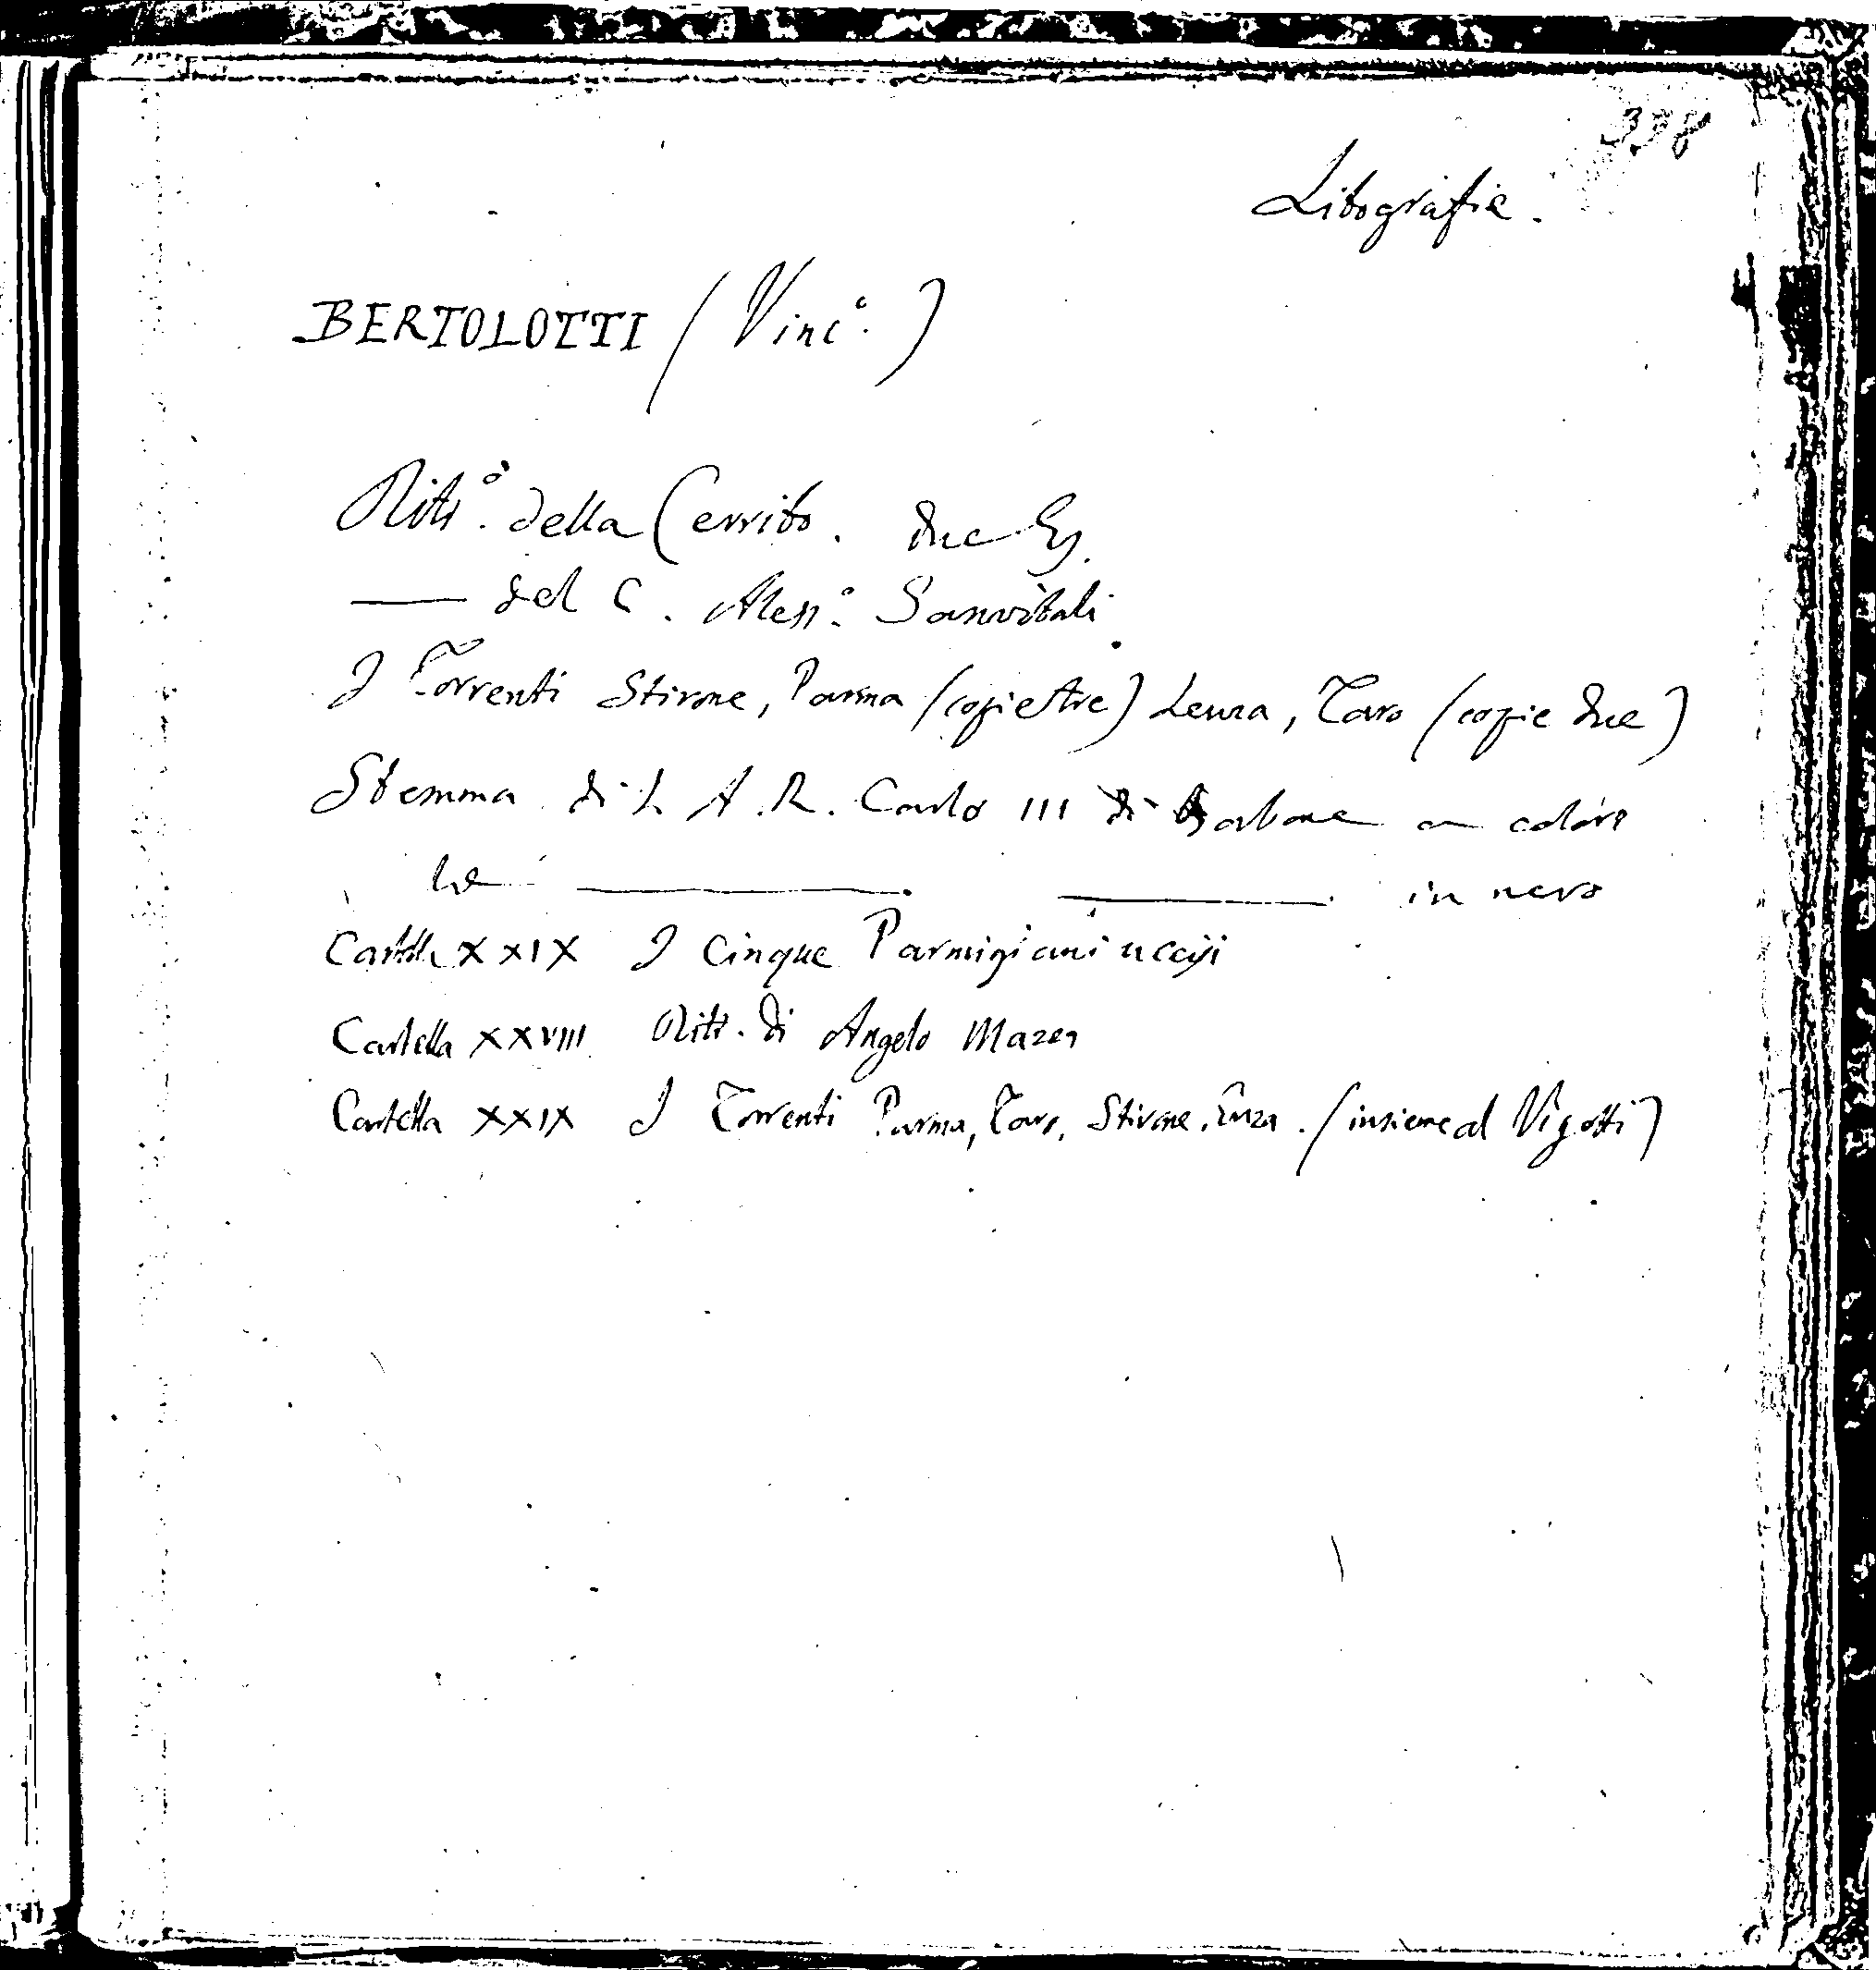 338
Litografie.
BERTOLOTTI (Vinc.º)
Ritr.º della Cerrito. due Es.
—— del C. Aless.º Sanvitali
I Torrenti Stirone, Parma (copie tre) Lenza, Taro (copie due)
Stemma di S. A. R. Carlo III di Borbone a colore
—— —— in nero
Cartella XXIX I Cinque Parmigiani uccisi
Cartella XXVIII Ritr. di Angelo Mazza
Cartella XXIX I Torrenti Parma, Taro, Stirone, Enza. (insieme al Vigotti)